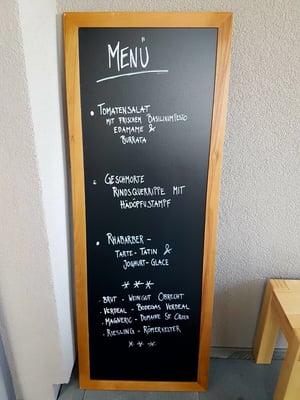 MENÜ
• TOMATENSALAT
MIT FRISCHEM BASILIKUMPESTO
EDAMAME &
BURRATA
• GESCHMORTE
RINDSQUERRIPPE MIT
HÄDÖPFUSTAMPF
• RHABARBER -
TARTE - TATIN &
JOGHURT - GLACE
***
. BRUT - WEINGUT OBRECHT
. VERDEAL - BODEGAS VERDEAL
. MAGNERIC - DOMAINE
. RIESLING - RÖMERKELTER
***